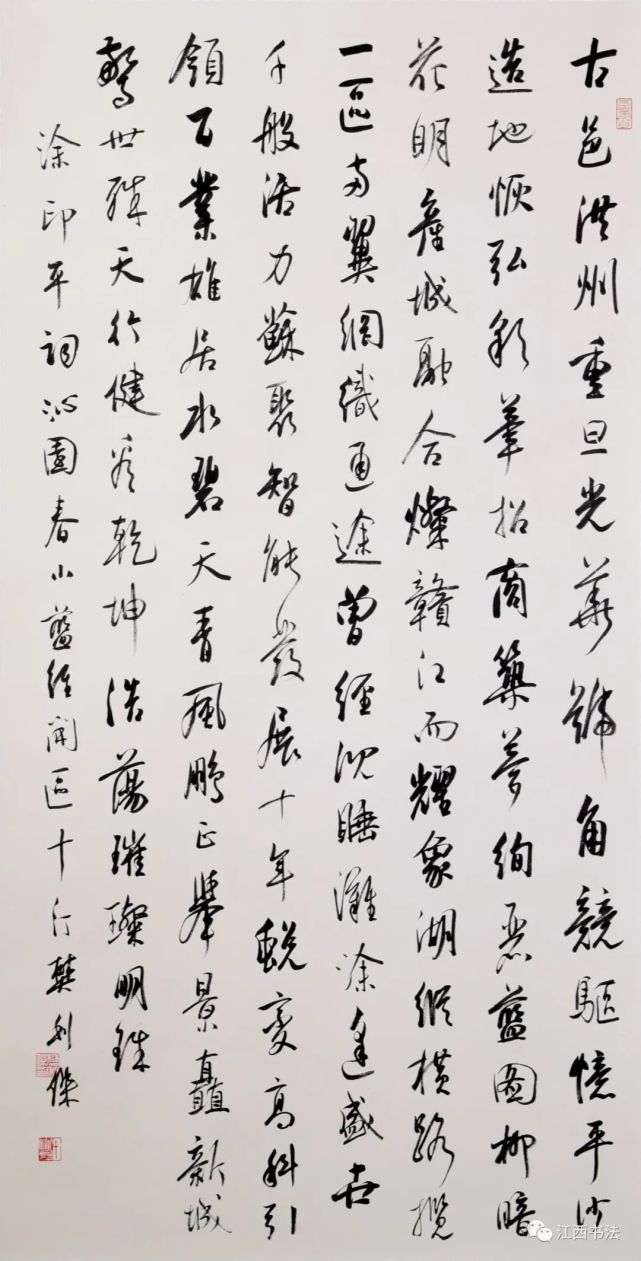 古邑洪州重旦光華號角競驅憶平沙
造地恢弘彩筆招商築夢絢麗藍圖柳暗
花明產城融合燦贛江而耀象湖縱橫路攬
一區兩翼網織通途曾經沉睡灘塗逢盛世
千般活力蘇聚智能發展十年蛻變高科引
領百業雄居水碧天青風鵬正舉景矗新城
驚世殊天行健看乾坤浩蕩璀璨明珠
涂印平詞沁園春小藍經開區十行樊利傑
江西书法